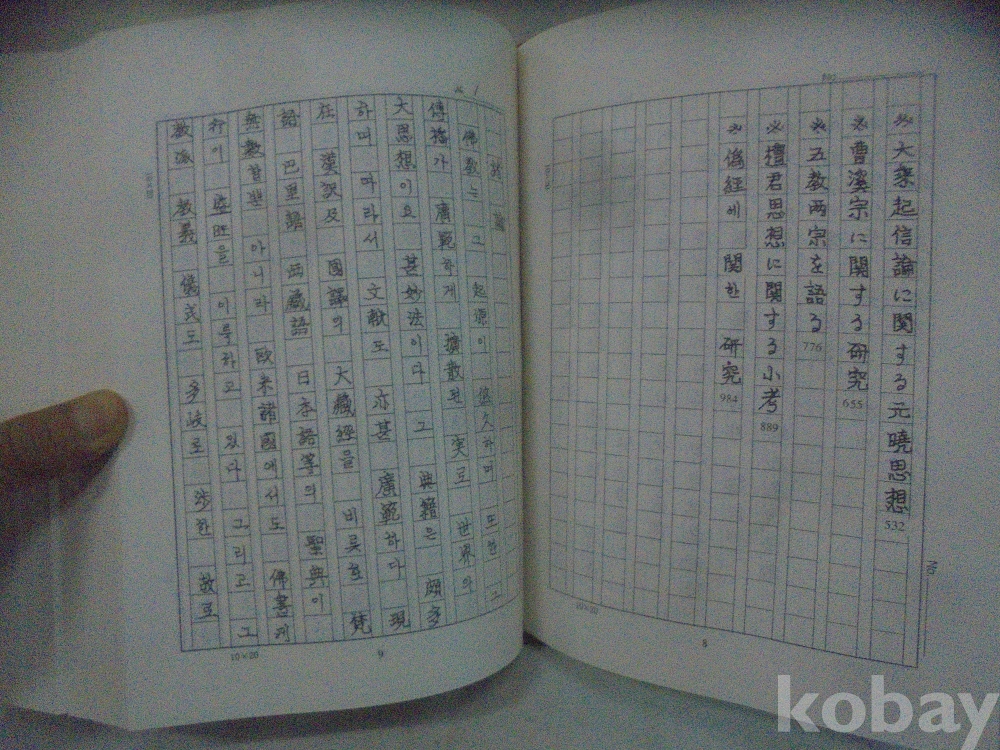 ※大乘起信論に関する元曉思想 532
※曹溪宗に関する研究 655
※五教両宗を語る 776
※檀君思想に関する小考 889
※僞經에 関한 研究 984
8
NO
10×20
No 1
論
佛教는 그 起源이 悠久하며 또한 그
傳播가 廣範하게 擴散된 実로 世界의
大思想이요 甚妙法이다 그 典籍은 頗多
하며 따라서 文献도 亦甚 廣範하다 現
在 漢訳及 國譯의 大藏經을 비롯호 梵
語 巴里語 西藏語 日本語等의 聖典이
無數할뿐 아니라 欧米諸國에서도 佛書刊
行이 旺을 이룩하고 있다 그리고 그
教派 教義 儀式도 多岐로 涉한 教로
10×20
9
kobay